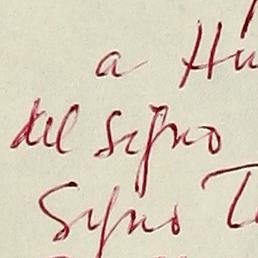 a Hu
del Signo
Signo T